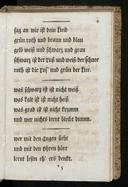 sag an wie ist dein kleid
grün roth und braun und blau
gelb weiß und schwarz und grau
schwarz ist der Fuß und weiß der schaar
roth ist die und grün der Klee.
was schwarz ist ist nicht weiß
was kalt ist ist nicht heiß
was grad ist ist nicht krumm
und wer nichts lernt bleibt dumm.
wer mit den augen sieht
und mit den ohren hört
lernt lesen eh' ers denkt.